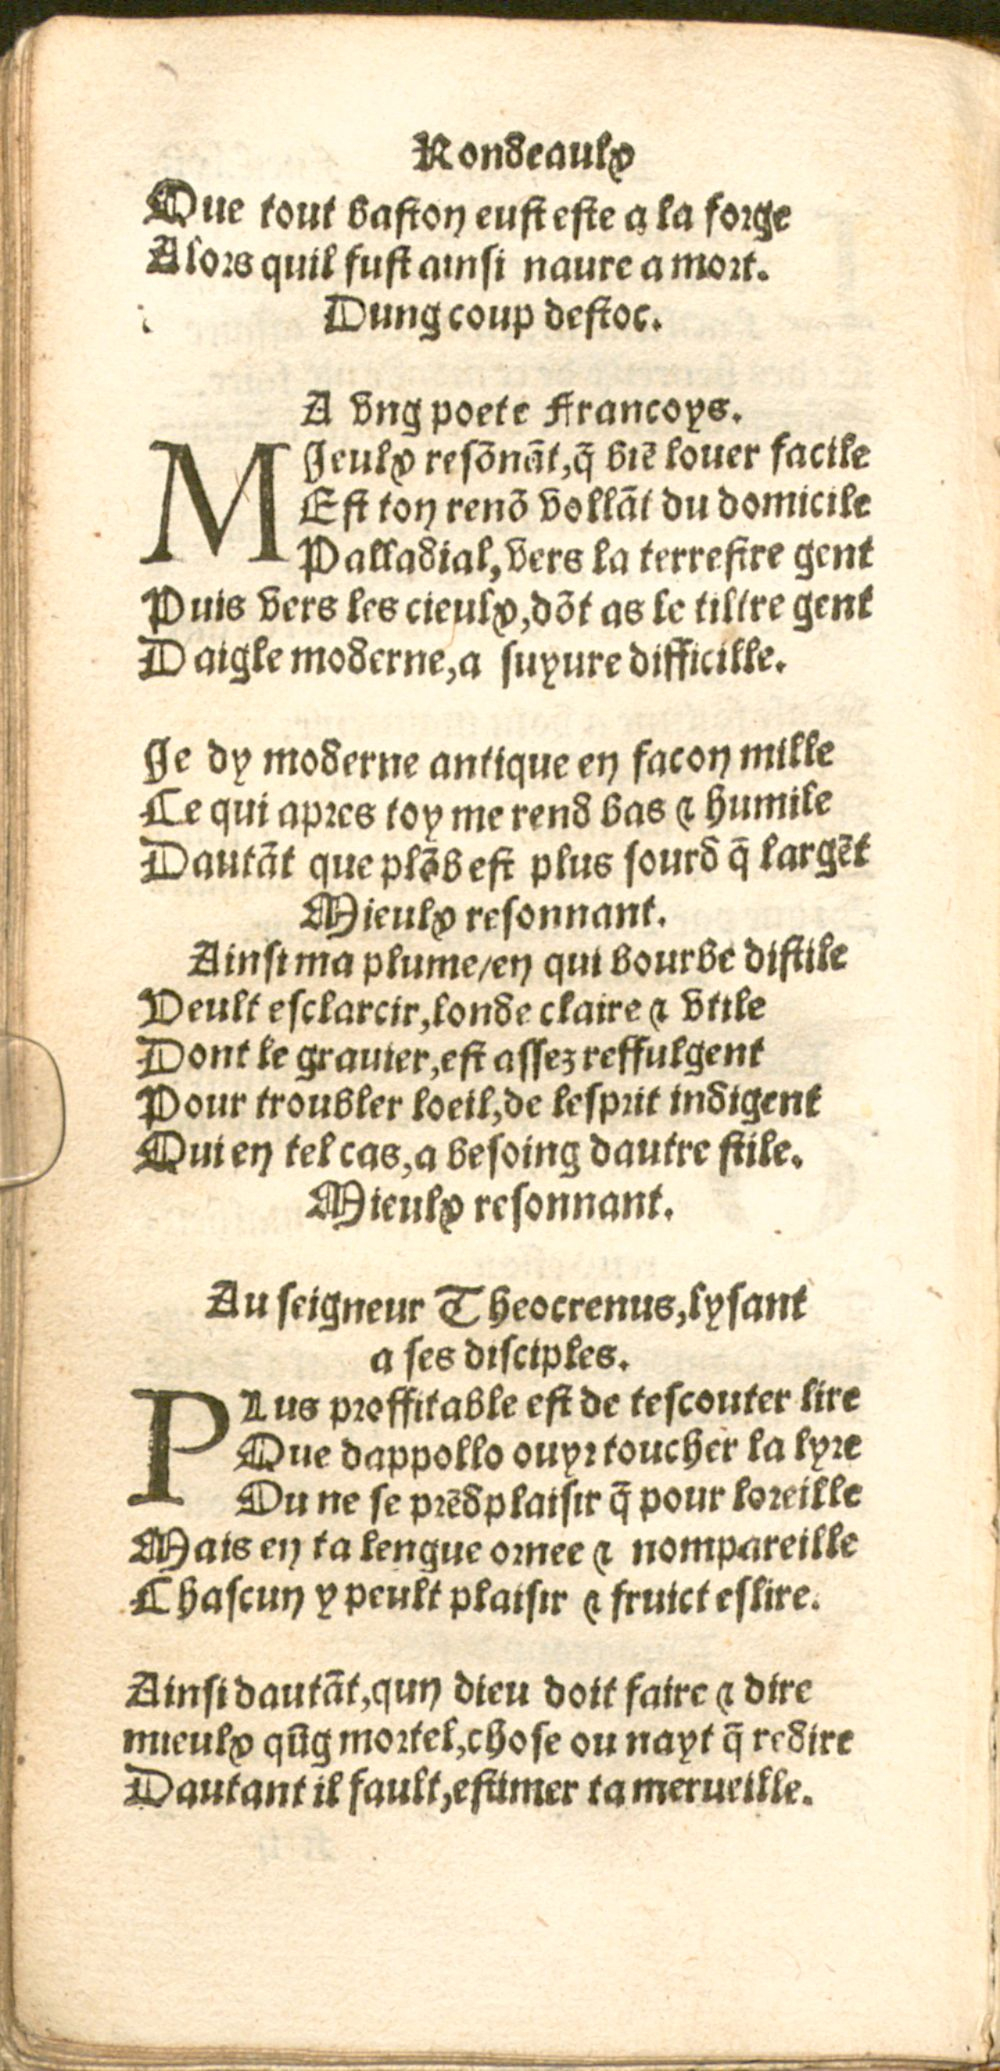 Rondeaulx
Que tout baston eust este a la forge
Alors quil fust ainsi naure a mort.
Dung coup destoc.
A vng poete Francoys.
MIeulx resōnāt,q̄ biē louer facile
Est ton renō vollāt du domicile
Palladial,vers la terrestre gent
Puis vers les cieulx,dōt as le tiltre gent
Daigle moderne,a suyure difficille.
Je dy moderne antique en facon mille
Ce qui apres toy me rend bas & humile
Dautāt que plōb est plus sourd q̄ largēt
Mieulx resonnant.
Ainsi ma plume/en qui bourbe distile
Veult esclarcir,londe claire & vtile
Dont le grauier,est assez reffulgent
Pour troubler loeil,de lesprit indigent
Qui en tel cas,a besoing dautre stile.
Mieulx resonnant.
Au seigneur Theocrenus,lysant
a ses disciples.
PLus proffitable est de tescouter lire
Que dappollo ouyr toucher la lyre
Ou ne se prēd plaisir q̄ pour loreille
Mais en ta lengue ornee & nompareille
Chascun y peult plaisir & fruict eslire.
Ainsi dautāt,qun dieu doit faire & dire
mieulx qūg mortel,chose ou nayt q̄ redire
Dautant il fault,estimer ta merueille.